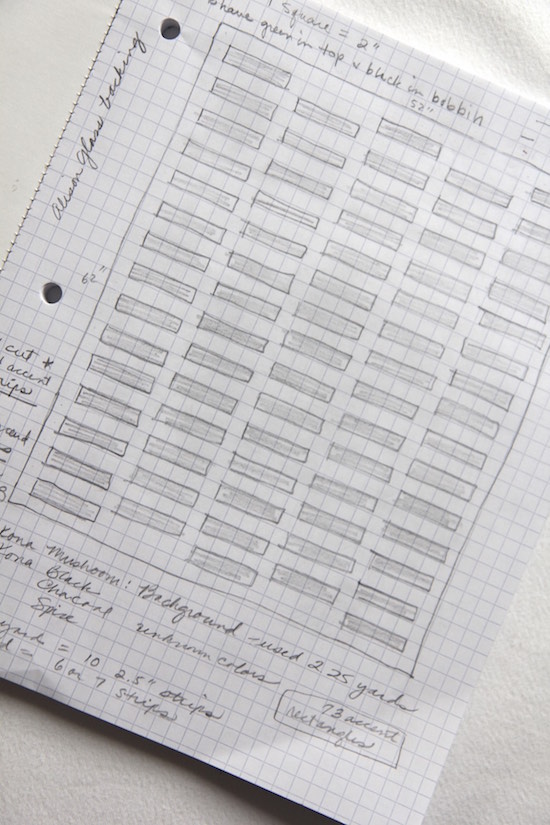 1 Square = 2"
have green in top & black in bobbin
52"
Alison Glass backing
62"
cut &
accent
Kona Mushroom: Background - used 2.25 yards
Kona Black
Charcoal
Spice
unknown colors
yards = 10 2.5" strips
= 6 or 7 strips
73 accent
rectangles